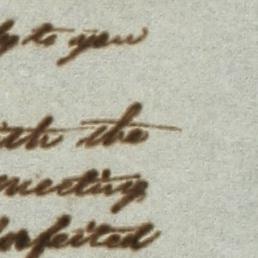 ly to you
ith the
meeting
forfeited